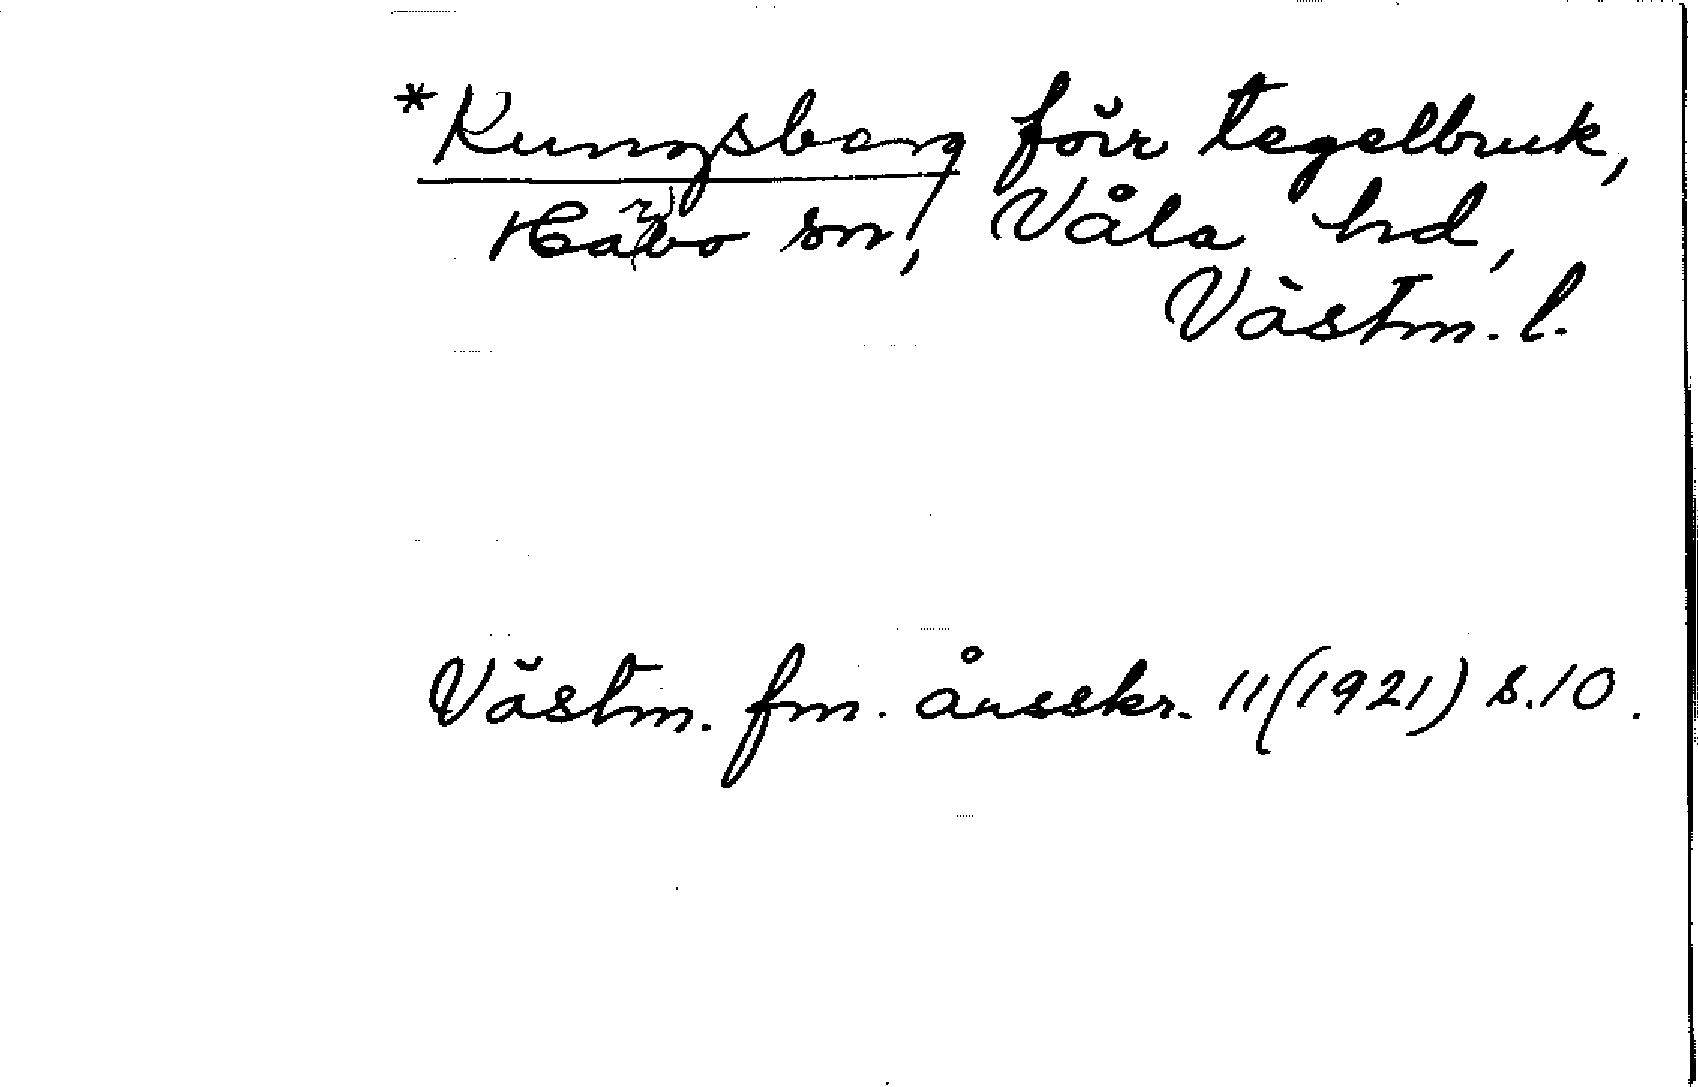 *Kungsberg förr tegelbruk,
Härvo sn, Våla hd,
Västm. l.
Västm. fm. årsskr. 11 (1921) s. 10.